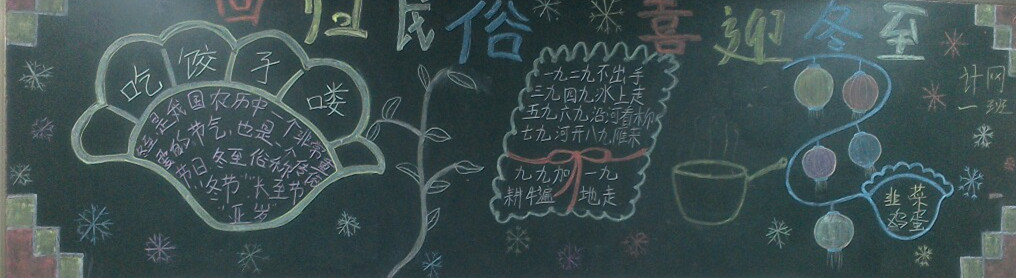 回归民俗 喜迎冬至
吃饺子喽
是我国农历中一个非常重
要的节气,也是一个传统
节日,冬至俗称
"冬节""长至节"
"亚岁"
一九二九不出手
三九四九冰上走
五九六九沿河看柳
七九河开八九雁来
九九加一九
耕牛遍地走
韭菜
鸡蛋
计网
一班